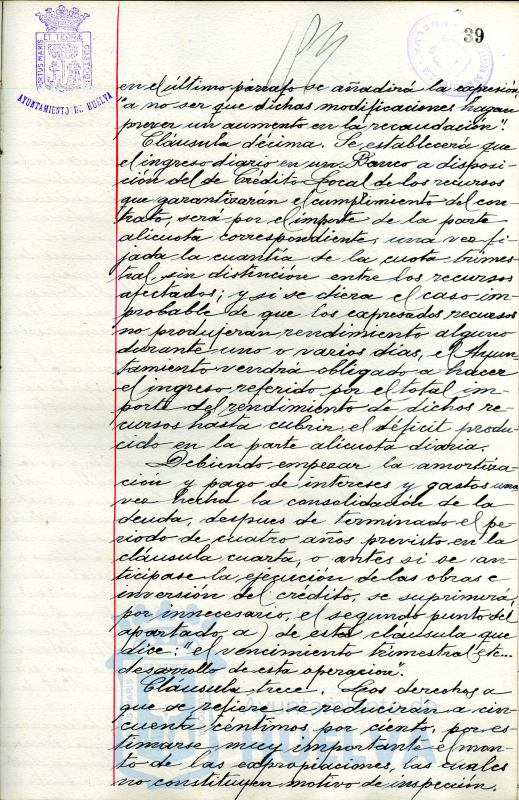 39
PORTUS MARIS ET TERRAE CUSTODIA
AYUNTAMIENTO DE HUELVA
en el último párrafo se añadirá la expresión,
"a no ser que dichas modificaciones hagan
prever un aumento en la recaudación".
Cláusula décima. Se establecerá que
el ingreso diario en un Banco a disposi-
ción del de Crédito Local de los recursos
que garantizarán el cumplimiento del con-
trato, será por el importe de la parte
alicuota correspondiente, una vez fi-
jada la cuantía de la cuota trimes-
tral, sin distinción entre los recursos
afectados; y si se diera el caso im-
probable de que los expresados recursos
no produjeran rendimiento alguno
durante uno o varios días, el Ayun-
tamiento vendrá obligado a hacer
el ingreso referido por el total im-
porte del rendimiento de dichos re-
cursos hasta cubrir el déficit produ-
cido en la parte alicuota diaria.
Debiendo empezar la amortiza-
ción y pago de intereses y gastos una
vez hecha la consolidación de la
deuda, despues de terminado el pe-
riodo de cuatro años previsto en la
cláusula cuarta, o antes si se an-
ticipase la ejecución de las obras e
inversión del crédito, se suprimirá,
por innecesario, el segundo punto del
apartado a) de esta cláusula que
dice: "el vencimiento trimestral etc...
desarrollo de esta operacion".
Cláusula trece. Los derechos a
que se refiere se reducirán a cin-
cuenta céntimos por ciento, por es-
timarse muy importante el mon-
to de las expropiaciones, las cuales
no constituyen motivo de inspección.
HUELVA